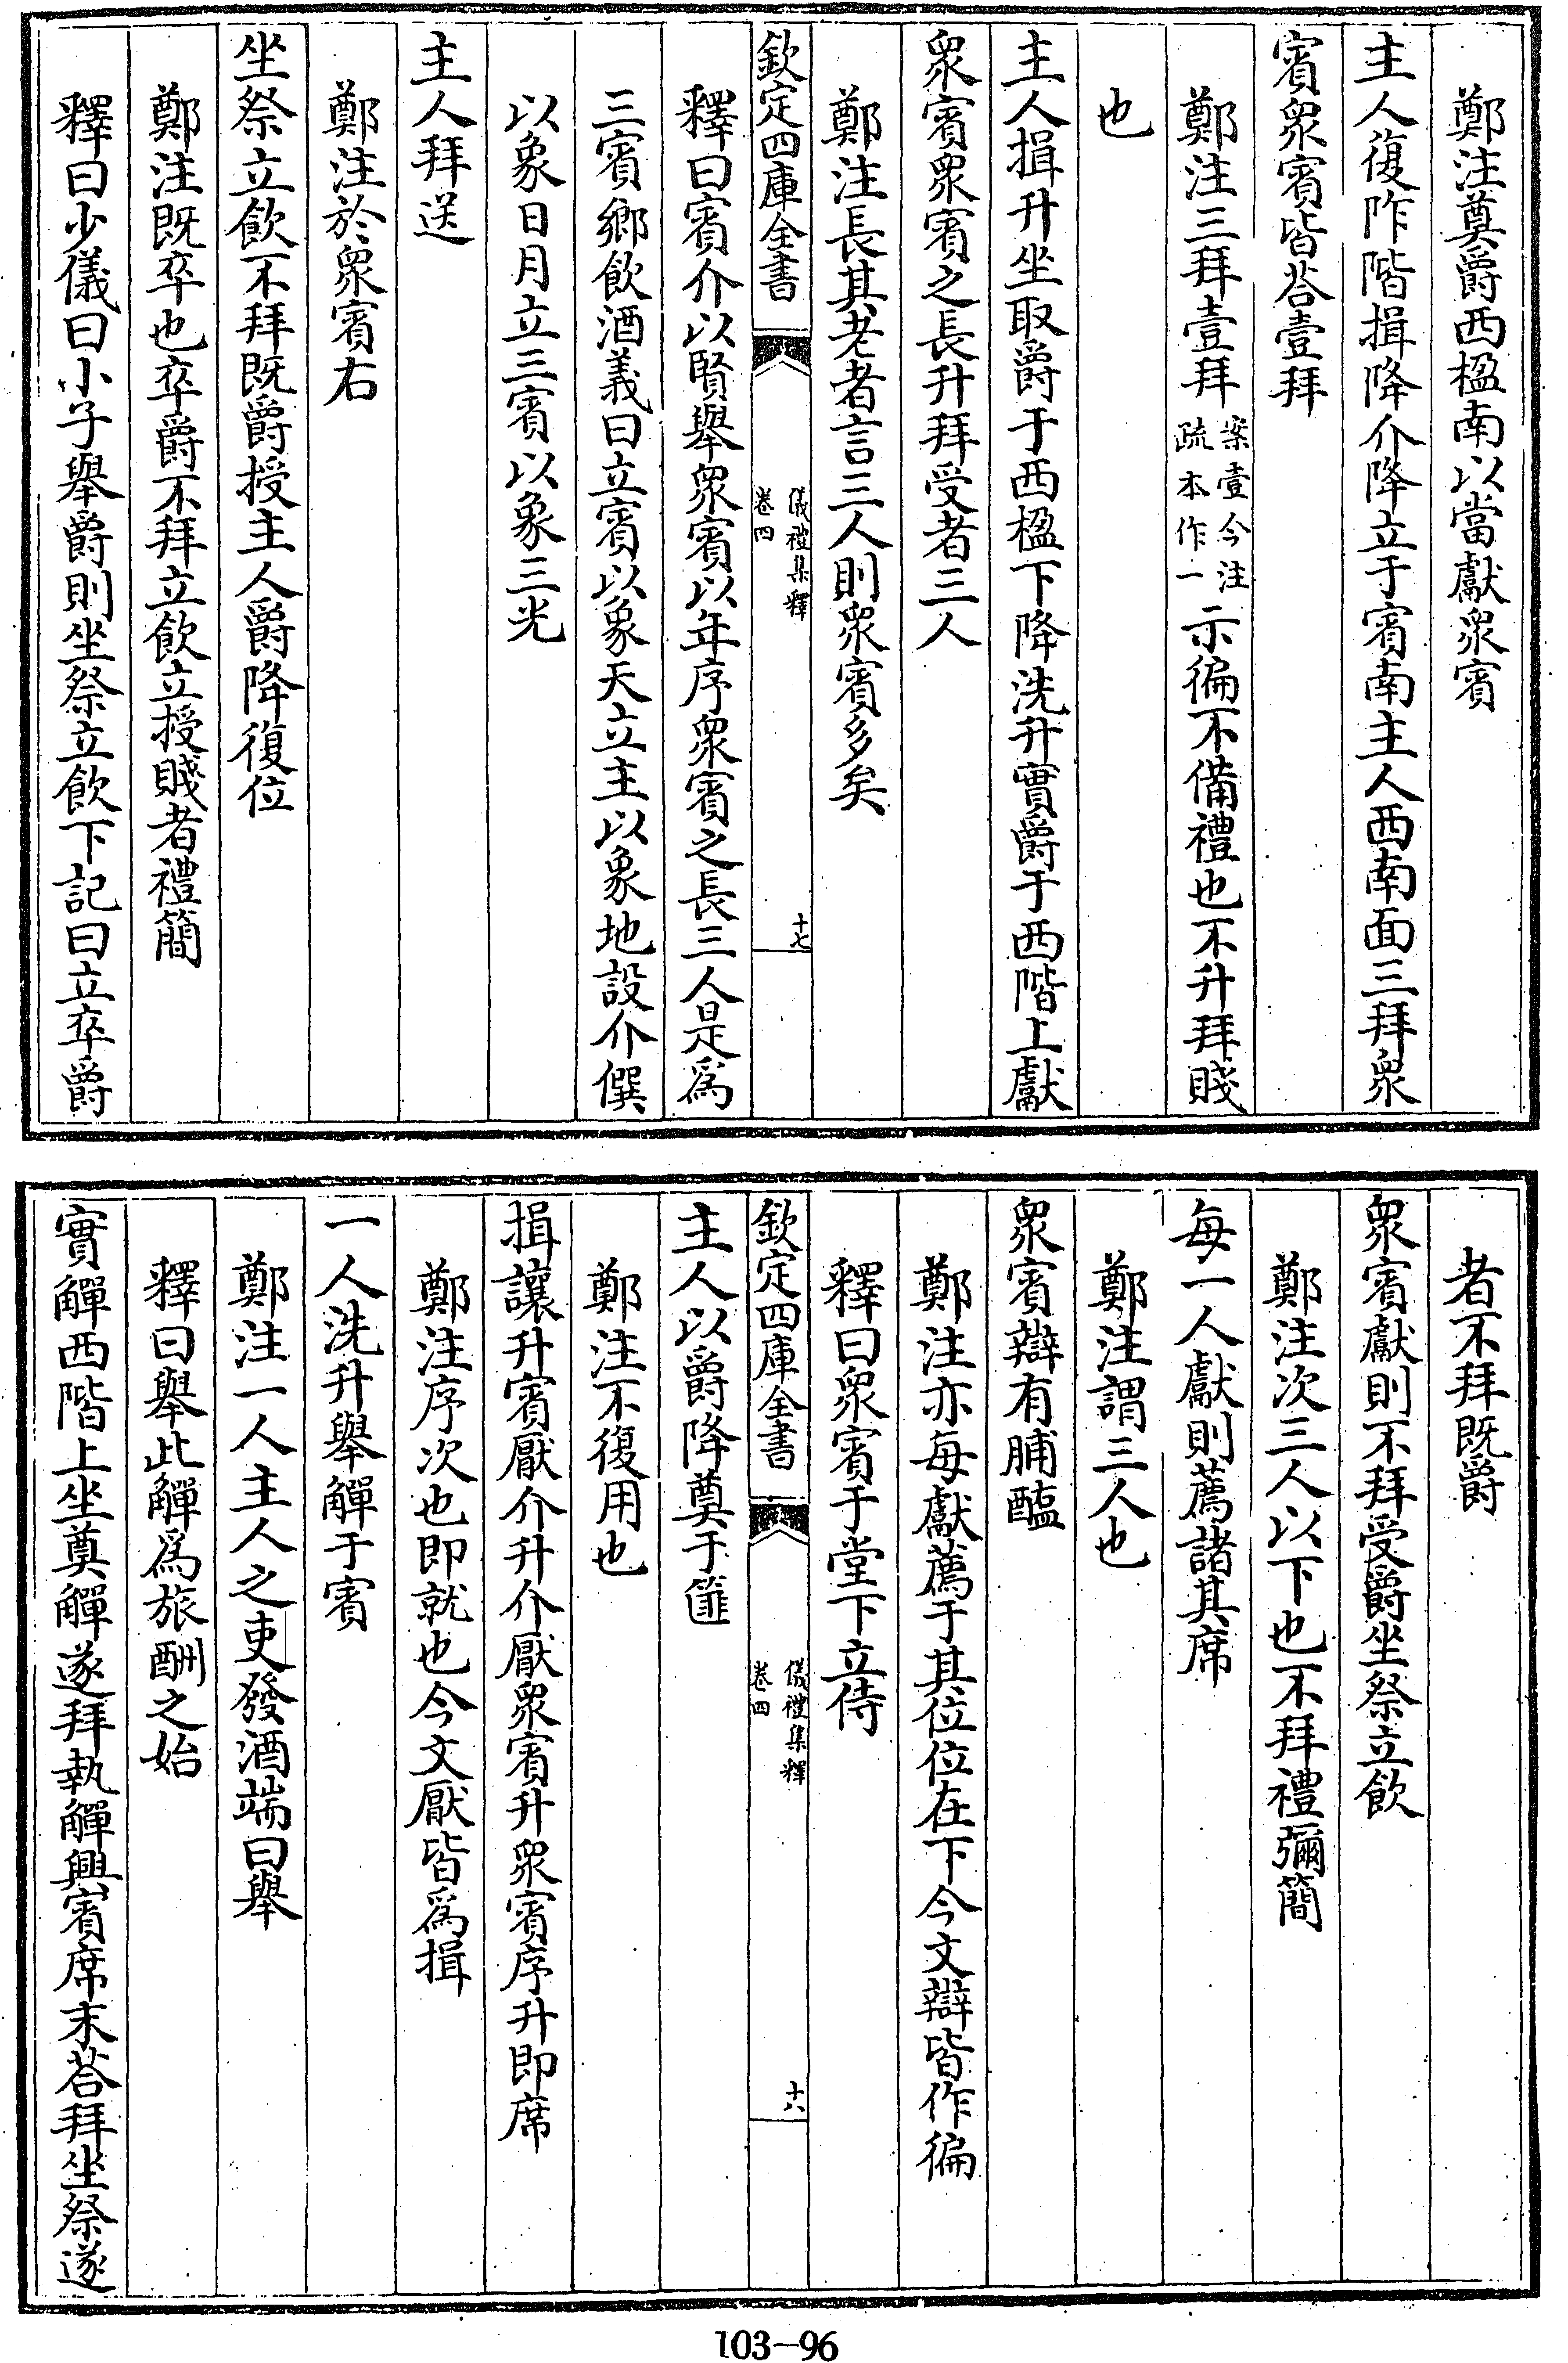 鄭注奠爵西楹南以當獻衆賓
主人復阼階揖降介降立于賓南主人西南面三拜衆
賓衆賓皆荅壹拜
鄭注三拜壹拜案壹今注疏本作一示徧不備禮也不升拜賤
也
主人揖升坐取爵于西楹下降洗升實爵于西階上獻
衆賓衆賓之長升拜受者三人
鄭注長其老者言三人則衆賓多矣
欽定四庫全書
儀禮集釋
卷四
十七
釋曰賓介以賢舉衆賓以年序衆賓之長三人是爲
三賓鄉飲酒義曰立賓以象天立主以象地設介僎
以象日月立三賓以象三光
主人拜送
鄭注於衆賓右
坐祭立飲不拜既爵授主人爵降復位
鄭注既卒也卒爵不拜立飲立授賤者禮簡
釋曰少儀曰小子舉爵則坐祭立飲下記曰立卒爵
者不拜既爵
衆賓獻則不拜受爵坐祭立飲
鄭注次三人以下也不拜禮彌簡
每一人獻則薦諸其席
鄭注謂三人也
衆賓辯有脯醢
鄭注亦每獻薦于其位位在下今文辯皆作徧
釋曰衆賓于堂下立侍
欽定四庫全書
儀禮集釋
卷四
十八
主人以爵降奠于篚
鄭注不復用也
揖讓升賓厭介升介厭衆賓升衆賓序升即席
鄭注序次也即就也今文厭皆爲揖
一人洗升舉觶于賓
鄭注一人主人之吏發酒端曰舉
釋曰舉此觶爲旅酬之始
實觶西階上坐奠觶遂拜執觶興賓席末荅拜坐祭遂
103-96